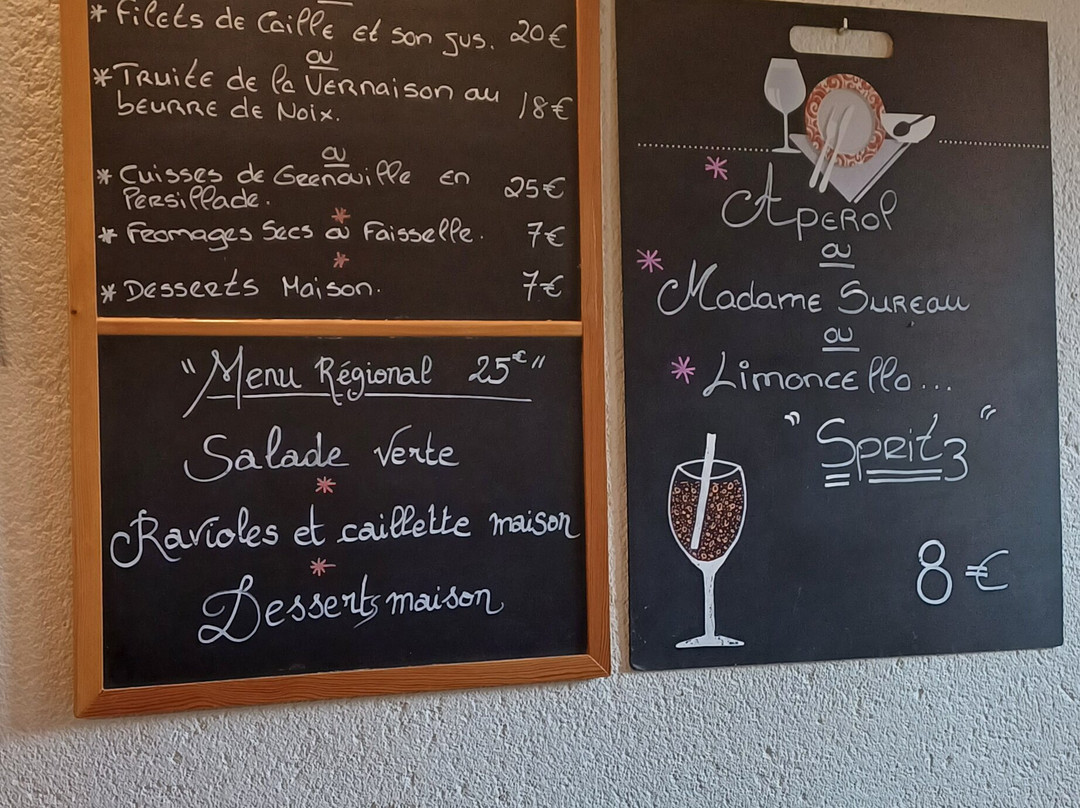 * Filets de Caille et son jus. 20€
ou
* Truite de la Vernaison au
beurre de Noix. 18€
ou
* Cuisses de Grenouille en
Persillade. 25€
*
* Fromages Secs ou Faisselle. 7€
*
* Desserts Maison. 7€
"Menu Régional 25€"
Salade verte
*
Ravioles et caillette maison
*
Desserts maison
* Aperol
ou
* Madame Sureau
ou
* Limoncello...
"Spritz"
8€